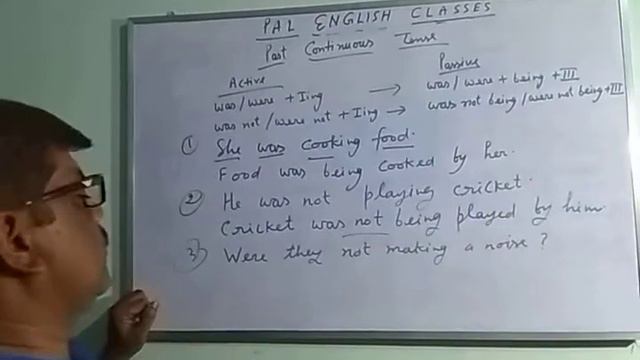 PAL ENGLISH CLASSES
Past Continuous Tense
Active
Passive
was/were + Iing → was/were + being + III
was not/were not + Iing → was not being/were not being + III
① She was cooking food.
Food was being cooked by her.
② He was not playing cricket.
Cricket was not being played by him
③ Were they not making a noise?